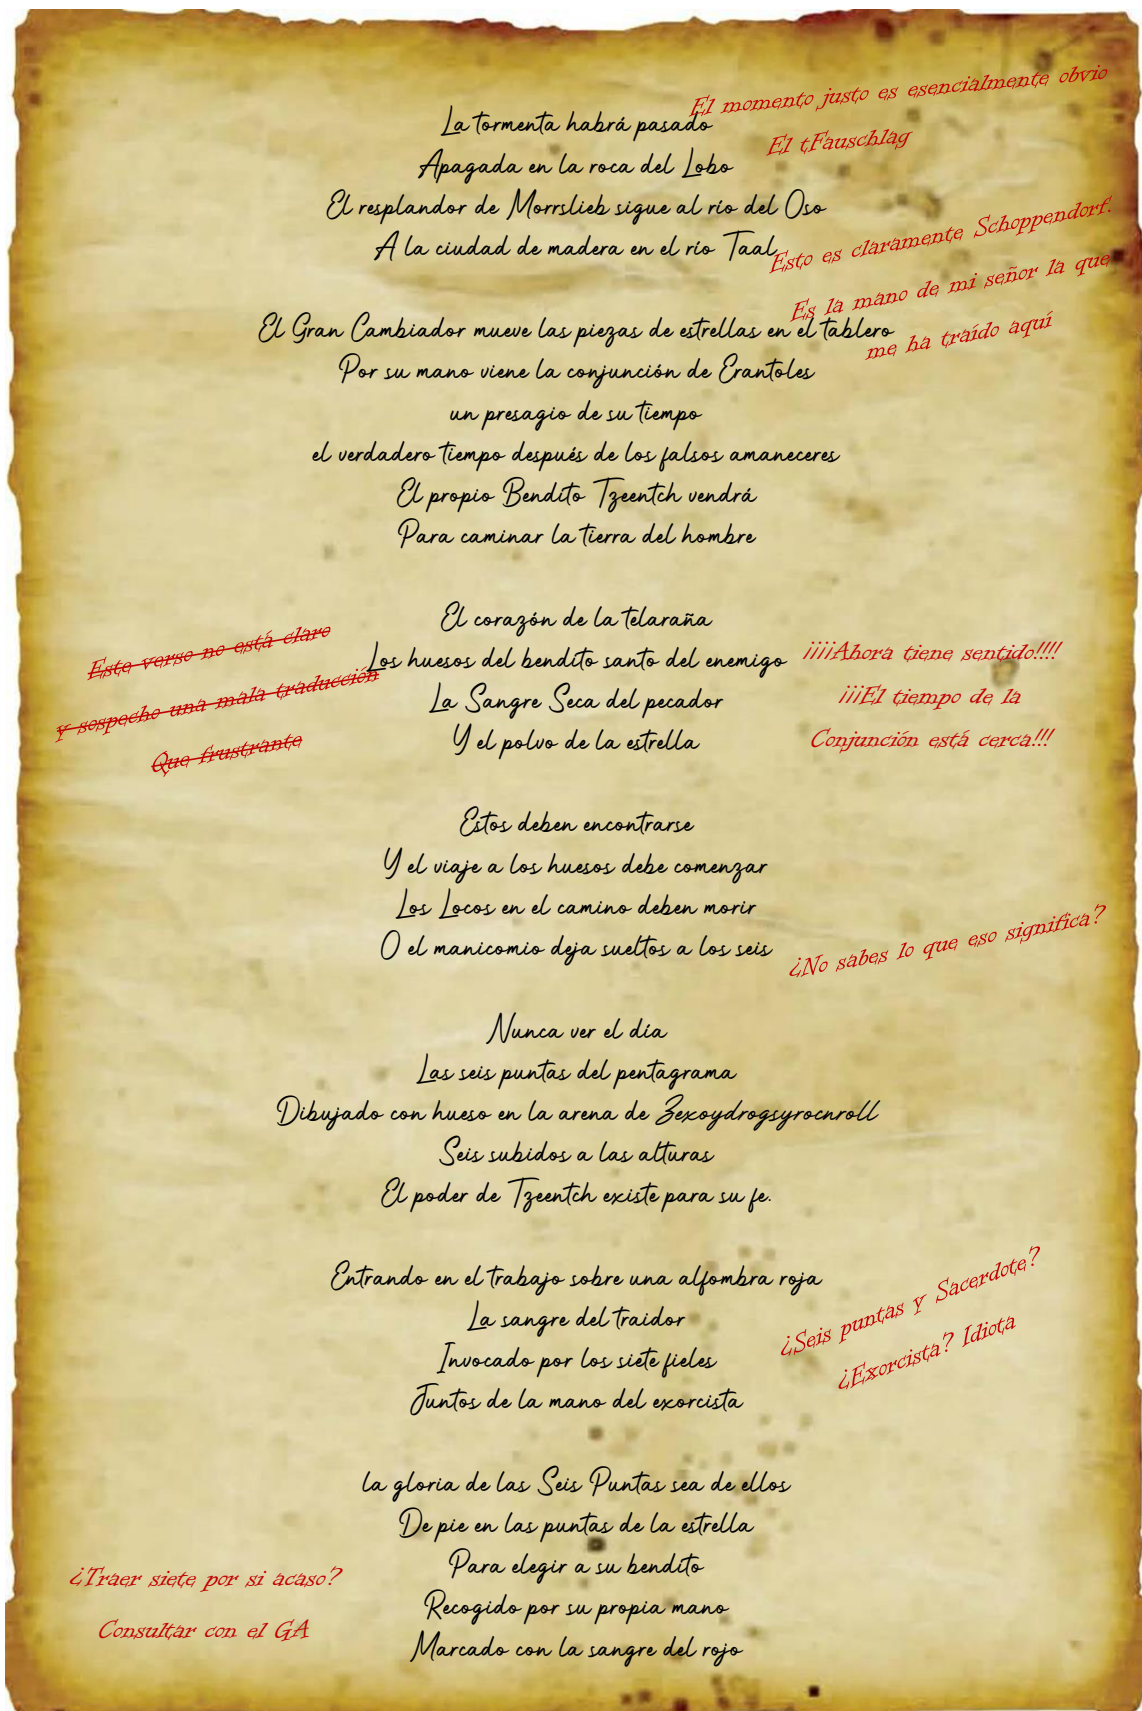 El momento justo es esencialmente obvio
La tormenta habrá pasado
El tFauschlag
Apagada en la roca del Lobo
El resplandor de Morrslieb sigue al río del Oso
A la ciudad de madera en el río Taal
Esto es claramente Schoppendorf.
Es la mano de mi señor la que
me ha traído aquí
El Gran Cambiador mueve las piezas de estrellas en el tablero
Por su mano viene la conjunción de Erantoles
un presagio de su tiempo
el verdadero tiempo después de los falsos amaneceres
El propio Bendito Tzeentch vendrá
Para caminar la tierra del hombre
El corazón de la telaraña
Los huesos del bendito santo del enemigo
La Sangre Seca del pecador
Y el polvo de la estrella
Este verso no está claro
y sospecho una mala traducción
Que frustrante
¡¡¡¡Ahora tiene sentido!!!!
¡¡¡El tiempo de la
Conjunción está cerca!!!
Estos deben encontrarse
Y el viaje a los huesos debe comenzar
Los Locos en el camino deben morir
O el manicomio deja sueltos a los seis
¿No sabes lo que eso significa?
Nunca ver el día
Las seis puntas del pentagrama
Dibujado con hueso en la arena de Zexoydrogsyrocnroll
Seis subidos a las alturas
El poder de Tzeentch existe para su fe.
Entrando en el trabajo sobre una alfombra roja
La sangre del traidor
Invocado por los siete fieles
Juntos de la mano del exorcista
¿Seis puntas y Sacerdote?
¿Exorcista? Idiota
la gloria de las Seis Puntas sea de ellos
De pie en las puntas de la estrella
Para elegir a su bendito
Recogido por su propia mano
Marcado con la sangre del rojo
¿Traer siete por si acaso?
Consultar con el GA